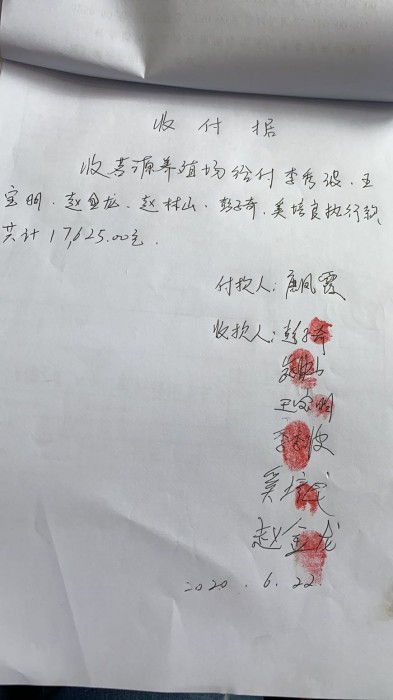 收付据
收菩源养殖场给付李秀波、王
宝明、赵金龙、赵林山、彭子奇、奚培良执行款
共计17,625.00元.
付款人:康凤霞
收款人:彭子奇
赵林山
王宝明
李秀波
奚培良
赵金龙
2020.6.22.